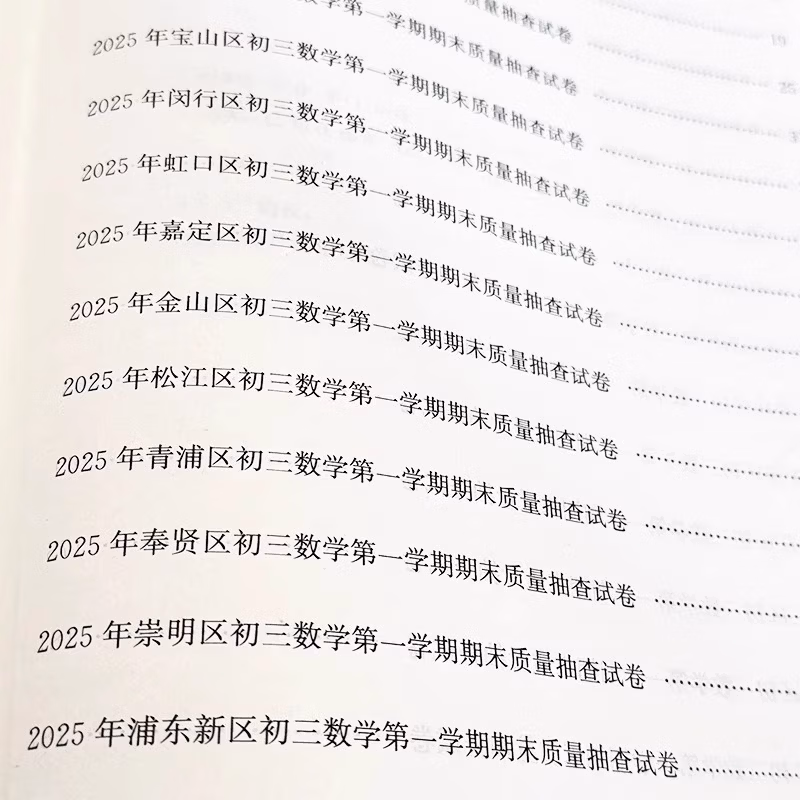 19
质量抽查试卷 25
数学第一学期期末质量抽查试卷
2025 年宝山区初三数学第一学期期末质量抽查试卷
2025 年闵行区初三数学第一学期期末质量抽查试卷
2025 年虹口区初三数学第一学期期末质量抽查试卷
2025 年嘉定区初三数学第一学期期末质量抽查试卷
2025 年金山区初三数学第一学期期末质量抽查试卷
2025 年松江区初三数学第一学期期末质量抽查试卷
2025 年青浦区初三数学第一学期期末质量抽查试卷
2025 年奉贤区初三数学第一学期期末质量抽查试卷
2025 年崇明区初三数学第一学期期末质量抽查试卷
2025 年浦东新区初三数学第一学期期末质量抽查试卷